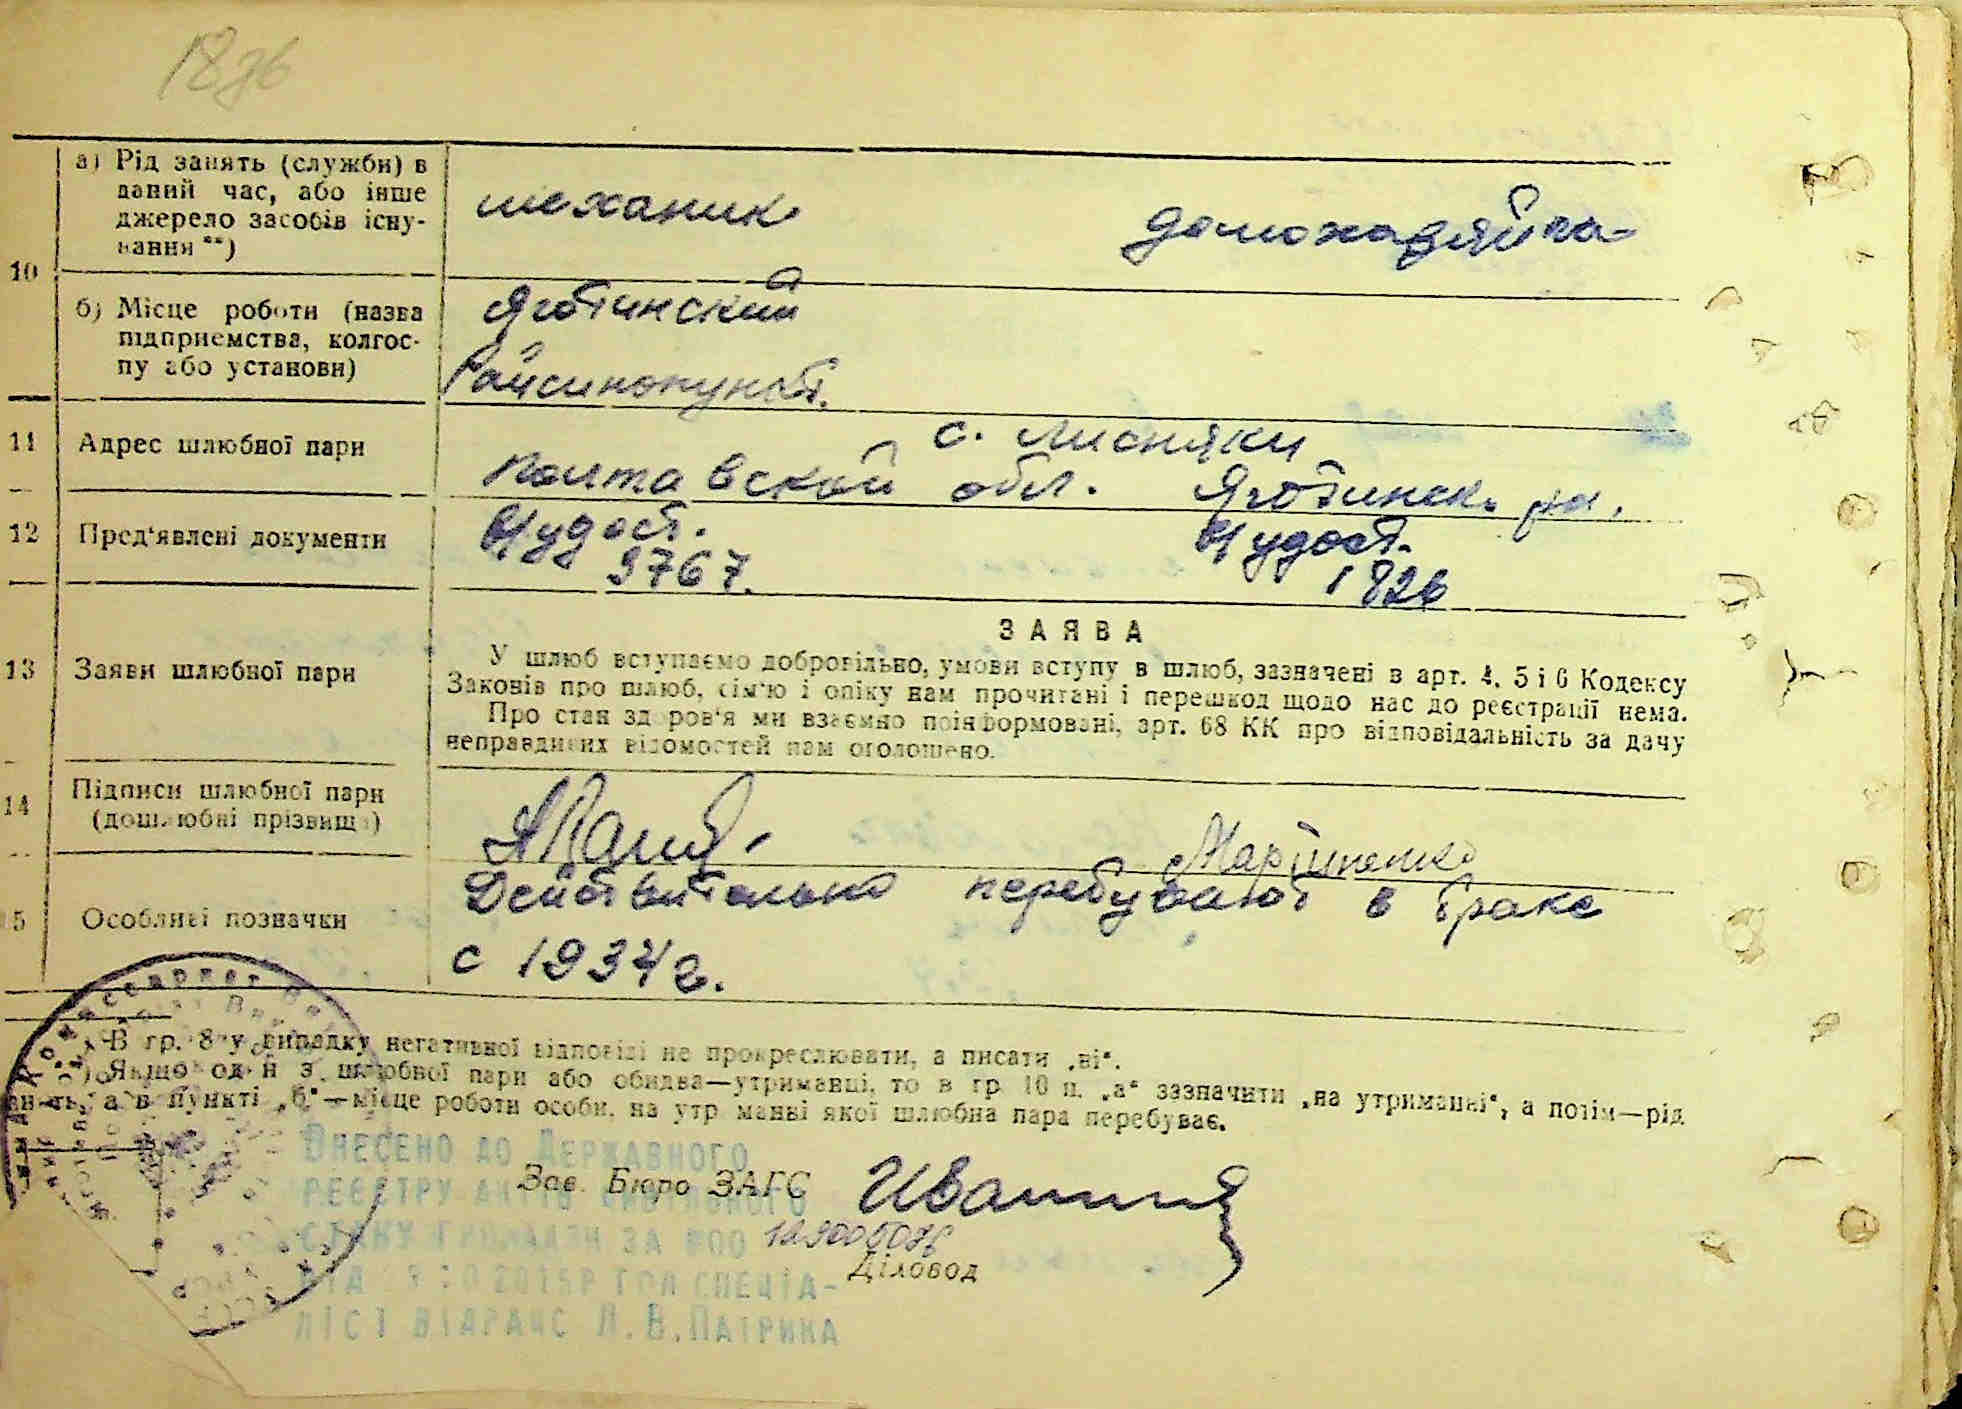 а) Рід занять (служби) в
даний час, або інше
джерело засобів існу-
вання **)
механик
домохазяйка
10
б) Місце роботи (назва
підприємства, колгос-
пу або установи)
Яготинский
Райсинопункт.
11
Адрес шлюбної пари
с. Лисняки
Полтавской обл. Яготинск. рн.
12
Пред'явлені документи
Удост.
9767.
Удост.
1826
ЗАЯВА
13
Заяви шлюбної пари
У шлюб вступаємо добровільно, умови вступу в шлюб, зазначені в арт. 4, 5 і 6 Кодексу
Законів про шлюб, сім'ю і опіку нам прочитані і перешкод щодо нас до реєстрації нема.
Про стан здоров'я ми взаємно поінформовані, арт. 68 КК про відповідальність за дачу
неправдивих відомостей нам оголошено.
14
Підписи шлюбної пари
(дошлюбні прізвища)
Мартиненко
15
Особливі позначки
Действительно перебувают в браке
с 1934 г.
В гр. 8 у випадку негативної відповіді не прокреслювати, а писати „ні“.
Якщо один з шлюбної пари або обидва—утриманці, то в гр. 10 п. „а“ зазначити „на утриманні“, а потім—рід
занять, а в пункті „б“—місце роботи особи, на утриманні якої шлюбна пара перебуває.
Внесено до Державного
реєстру актів цивільного
стану громадян за №00
2015р гол спеціа-
ліст відрацс Л.В.Патрика
Зав. Бюро ЗАГС
Діловод